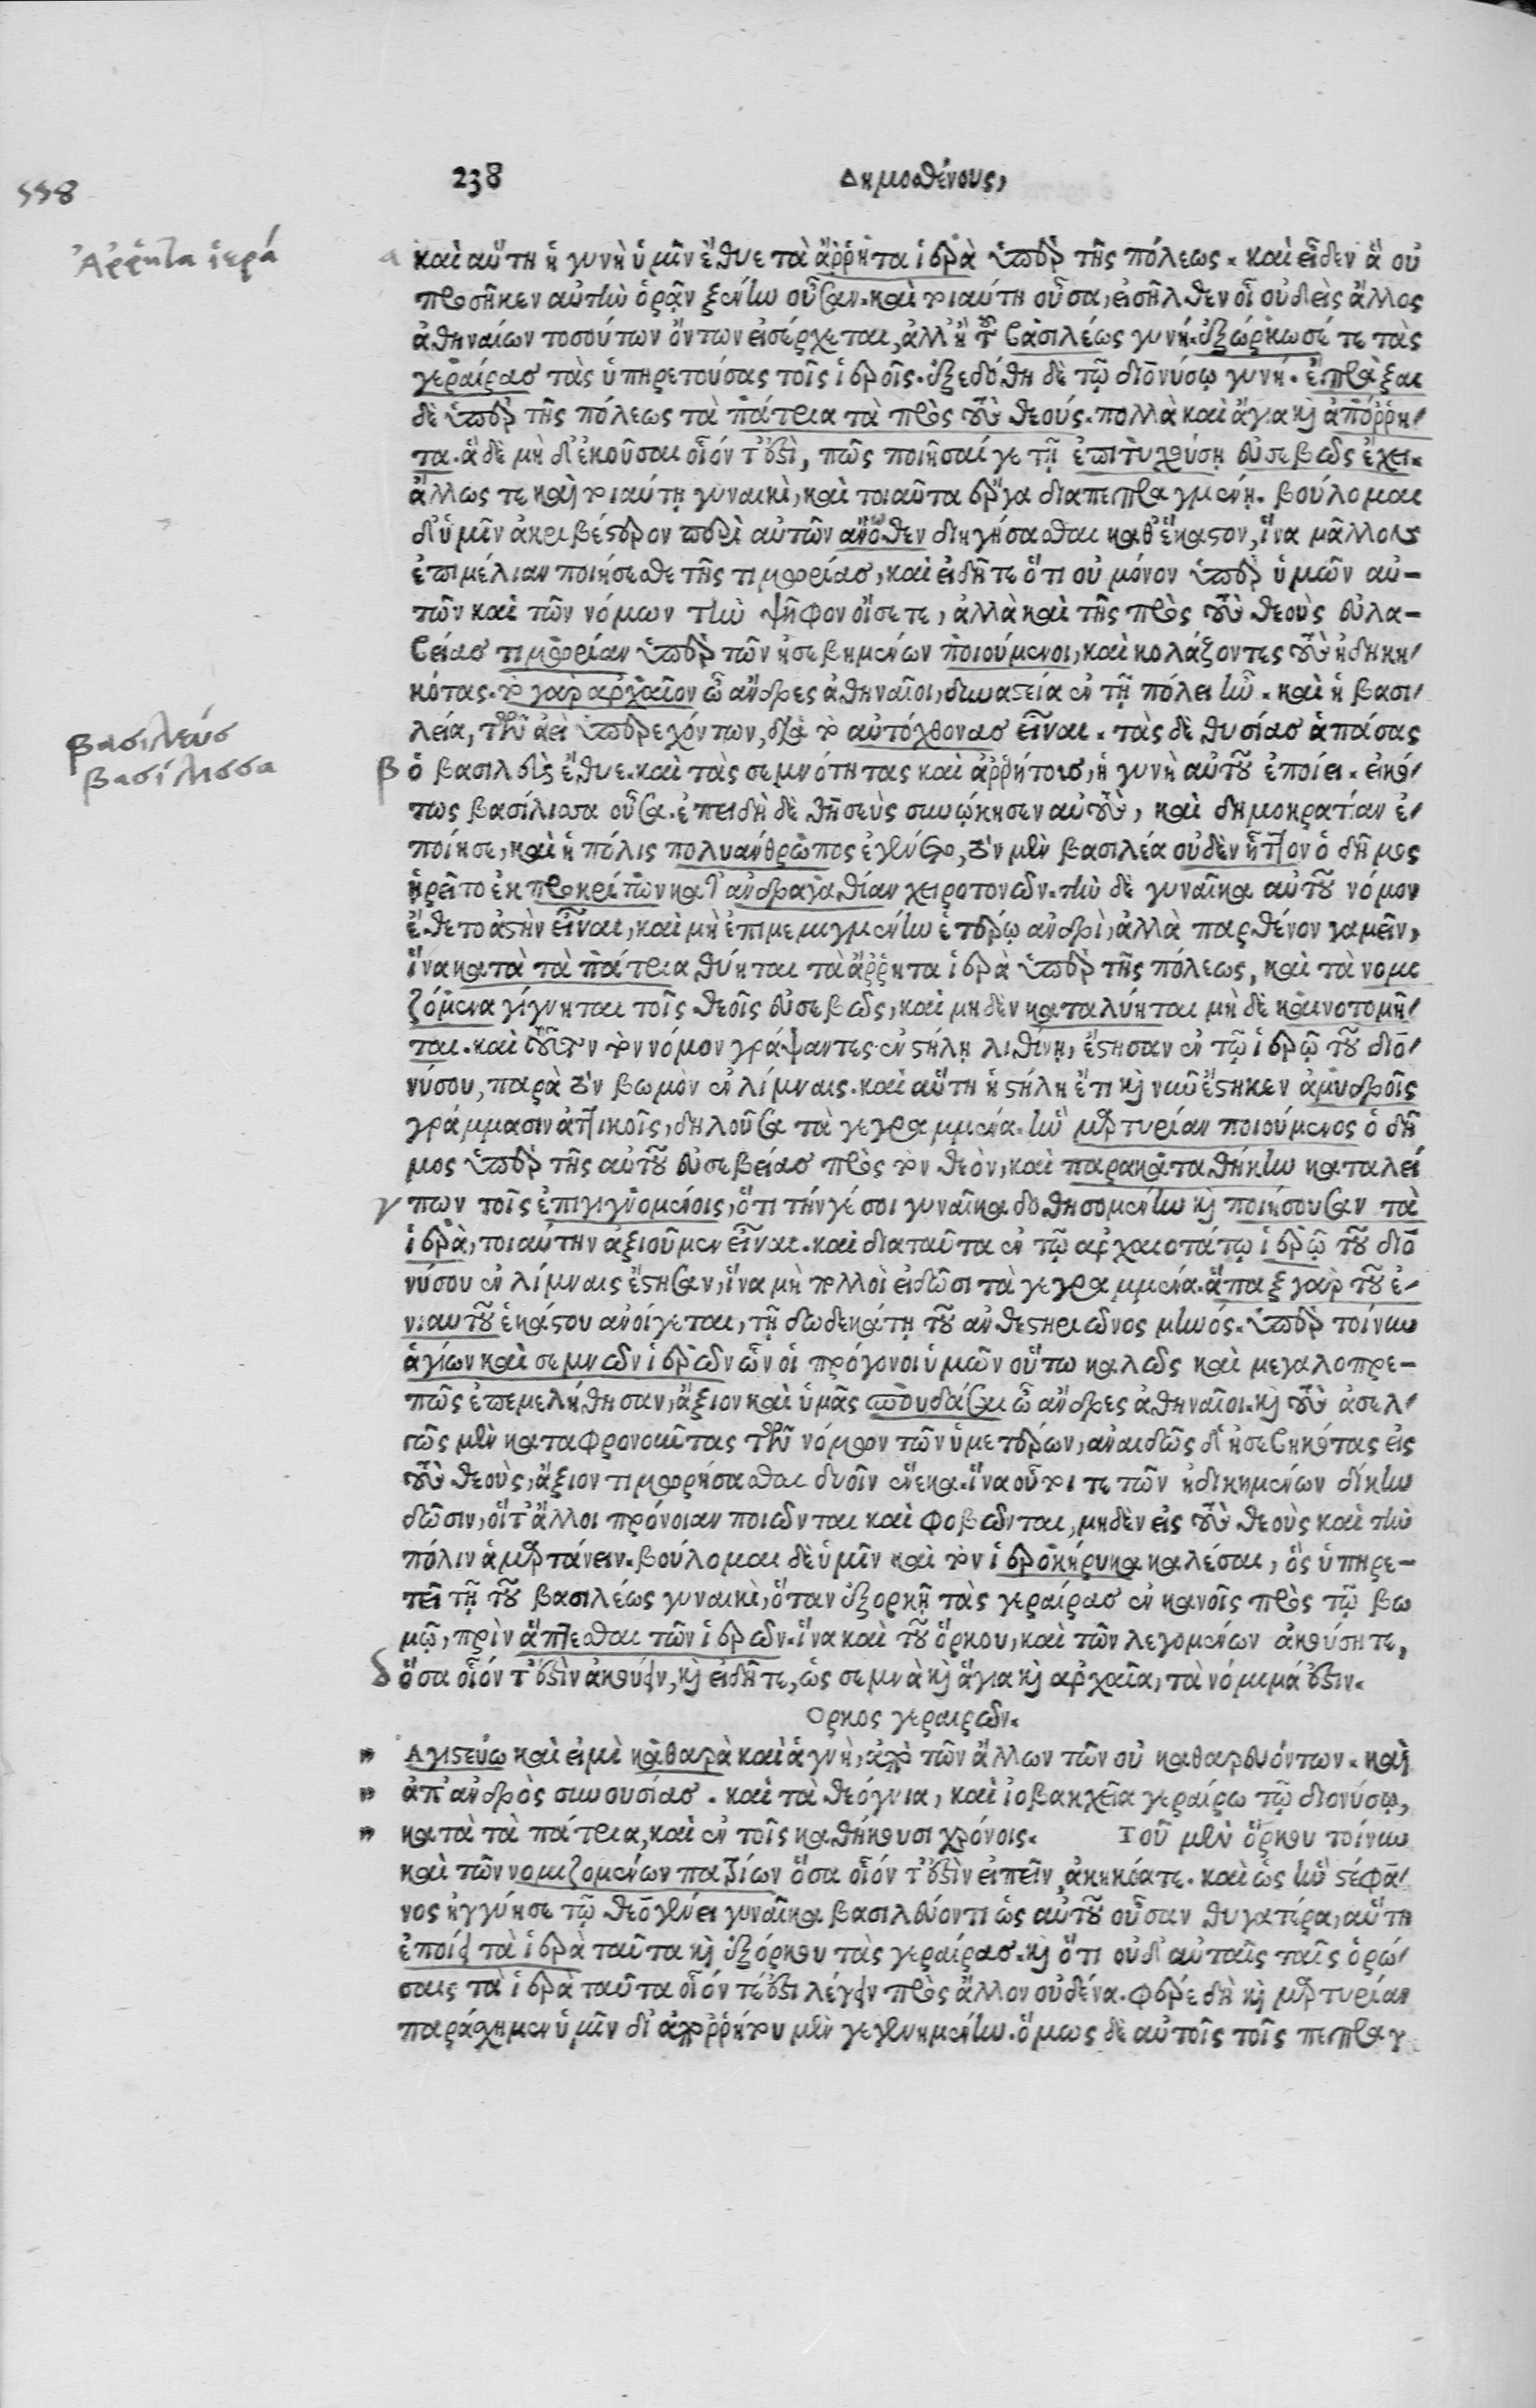 558
238 Δημοσθένους,
Ἄρρητα ἱερά
α καὶ αὕτη ἡ γυνὴ ὑμῖν ἔθυε τὰ ἄῤῥητα ἱερὰ ὑπὲρ τῆς πόλεως. καὶ εἶδεν ἃ οὐ
προσῆκεν αὐτὴν ὁρᾷν ξένην οὖσαν. καὶ τοιαύτη οὖσα, εἰσῆλθεν οἷ οὐδεὶς ἄλλος
ἀθηναίων τοσούτων ὄντων εἰσέρχεται, ἀλλ' ἢ τοῦ βασιλέως γυνή. ἐξώρκωσέ τε τὰς
γεραίρας τὰς ὑπηρετούσας τοῖς ἱεροῖς. ἐξεδόθη δὲ τῷ διονύσῳ γυνή. ἔπραξαι
δὲ ὑπὲρ τῆς πόλεως τὰ πάτρια τὰ πρὸς τοὺς θεούς. πολλὰ καὶ ἅγια καὶ ἀπόῤῥη-
τα. ἃ δὲ μὴ δ' ἀκοῦσαι οἷόν τ' ἐστὶ, πῶς ποιῆσαί γε τῇ ἐπιτυχούσῃ εὐσεβῶς ἔχει.
ἄλλως τε καὶ τοιαύτῃ γυναικὶ, καὶ τοιαῦτα ἔργα διαπεπραγμένῃ. βούλομαι
δ' ὑμῖν ἀκριβέστερον περὶ αὐτῶν ἄνωθεν διηγήσασθαι καθ' ἕκαστον, ἵνα μᾶλλον
ἐπιμέλιαν ποιήσεσθε τῆς τιμωρίας, καὶ εἰδῆτε ὅτι οὐ μόνον ὑπὲρ ὑμῶν αὐ-
τῶν καὶ τῶν νόμων τὴν ψῆφον οἴσετε, ἀλλὰ καὶ τῆς πρὸς τοὺς θεοὺς εὐλα-
βείας τιμωρίαν ὑπὲρ τῶν ἠσεβημένων ποιούμενοι, καὶ κολάζοντες τοὺς ἠδικη-
κότας. τὸ γὰρ ἀρχαῖον ὦ ἄνδρες ἀθηναῖοι, δυναστεία ἐν τῇ πόλει ἦν. καὶ ἡ βασι-
λεία, τῶν ἀεὶ ὑπερεχόντων, διὰ τὸ αὐτόχθονας εἶναι. τὰς δὲ θυσίας ἁπάσας
βασιλεύς
βασίλισσα
β ὁ βασιλεὺς ἔθυε. καὶ τὰς σεμνότητας καὶ ἀῤῥήτους, ἡ γυνὴ αὐτοῦ ἐποίει. εἰκό-
τως βασίλισσα οὖσα. ἐπειδὴ δὲ θησεὺς συνῴκησεν αὐτοὺς, καὶ δημοκρατίαν ἐ-
ποίησε, καὶ ἡ πόλις πολυάνθρωπος ἐγένετο, τὸν μὲν βασιλέα οὐδὲν ἧττον ὁ δῆμος
ᾑρεῖτο ἐκ προκρίτων κατ' ἀνδραγαθίαν χειροτονῶν. τὴν δὲ γυναῖκα αὐτοῦ νόμον
ἔθετο ἀστὴν εἶναι, καὶ μὴ ἐπιμεμιγμένην ἑτέρῳ ἀνδρὶ, ἀλλὰ παρθένον γαμεῖν,
ἵνα κατὰ τὰ πάτρια θύηται τὰ ἄῤῥητα ἱερὰ ὑπὲρ τῆς πόλεως, καὶ τὰ νομι
ζόμενα γίγνηται τοῖς θεοῖς εὐσεβῶς, καὶ μηδὲν καταλύηται μὴ δὲ καινοτομῆ-
ται. καὶ τοῦτον τὸν νόμον γράψαντες ἐν στήλῃ λιθίνῃ, ἔστησαν ἐν τῷ ἱερῷ τοῦ διο-
νύσου, παρὰ τὸν βωμὸν ἐν λίμναις. καὶ αὕτη ἡ στήλη ἔτι καὶ νῦν ἕστηκεν ἀμυδροῖς
γράμμασιν ἀττικοῖς, δηλοῦσα τὰ γεγραμμένα. ἣν μαρτυρίαν ποιούμενος ὁ δῆ
μος ὑπὲρ τῆς αὑτοῦ εὐσεβείας πρὸς τὸν θεὸν, καὶ παρακαταθήκην καταλεί
γ πων τοῖς ἐπιγιγνομένοις, ὅτι τήν γέ σοι γυναῖκα δοθησομένην καὶ ποιήσουσαν τὰ
ἱερὰ, τοιαύτην ἀξιοῦμεν εἶναι. καὶ διαταῦτα ἐν τῷ ἀρχαιοτάτῳ ἱερῷ τοῦ διο
νύσου ἐν λίμναις ἔστησαν, ἵνα μὴ πολλοὶ εἰδῶσι τὰ γεγραμμένα. ἅπαξ γὰρ τοῦ ἐ-
νιαυτοῦ ἑκάστου ἀνοίγεται, τῇ δωδεκάτῃ τοῦ ἀνθεστηριῶνος μηνός. ὑπὲρ τοίνυν
ἁγίων καὶ σεμνῶν ἱερῶν ὧν οἱ πρόγονοι ὑμῶν οὕτω καλῶς καὶ μεγαλοπρε-
πῶς ἐπεμελήθησαν, ἄξιον καὶ ὑμᾶς σπουδάσαι ὦ ἄνδρες ἀθηναῖοι. καὶ τοὺς ἀσελ-
γῶς μὲν καταφρονοῦντας τῶν νόμων τῶν ὑμετέρων, ἀναιδῶς δ' ἠσεβηκότας εἰς
τοὺς θεοὺς, ἄξιον τιμωρήσασθαι δυοῖν ἕνεκα. ἵνα οὗτοί τε τῶν ἠδικημένων δίκην
δῶσιν, οἵ τ' ἄλλοι πρόνοιαν ποιῶνται καὶ φοβῶνται, μηδὲν εἰς τοὺς θεοὺς καὶ τὴν
πόλιν ἁμαρτάνειν. βούλομαι δὲ ὑμῖν καὶ τὸν ἱεροκήρυκα καλέσαι, ὃς ὑπηρε-
τεῖ τῇ τοῦ βασιλέως γυναικὶ, ὅταν ἐξορκῇ τὰς γεραίρας ἐν κανοῖς πρὸς τῷ βω
μῷ, πρὶν ἅπτεσθαι τῶν ἱερῶν. ἵνα καὶ τοῦ ὅρκου, καὶ τῶν λεγομένων ἀκούσητε,
δ ὅσα οἷόν τ' ἐστὶν ἀκούειν, καὶ εἰδῆτε, ὡς σεμνὰ καὶ ἅγια καὶ ἀρχαῖα, τὰ νόμιμά ἐστιν.
Ορκος γεραιρῶν.
" Αγιστεύω καὶ εἰμὶ καθαρὰ καὶ ἁγνὴ, ἀπὸ τῶν ἄλλων τῶν οὐ καθαρευόντων. καὶ
" ἀπ' ἀνδρὸς συνουσίας. καὶ τὰ θεόγνια, καὶ ἰοβακχεῖα γεραίρω τῷ διονύσῳ,
" κατὰ τὰ πάτρια, καὶ ἐν τοῖς καθήκουσι χρόνοις. Τοῦ μὲν ὅρκου τοίνυν
καὶ τῶν νομιζομένων πατρίων ὅσα οἷόν τ' ἐστὶν εἰπεῖν, ἀκηκόατε. καὶ ὡς ἣν στέφα-
νος ἠγγύησε τῷ θεογένει γυναῖκα βασιλεύοντι ὡς αὑτοῦ οὖσαν θυγατέρα, αὕτη
ἐποίει τὰ ἱερὰ ταῦτα καὶ ἐξόρκου τὰς γεραίρας. καὶ ὅτι οὐδ' αὐταῖς ταῖς ὁρώ-
σαις τὰ ἱερὰ ταῦτα οἷόν τέ ἐστι λέγειν πρὸς ἄλλον οὐδένα. φέρε δὴ καὶ μαρτυρίαν
παράσχημεν ὑμῖν δι' ἀποῤῥήτου μὲν γεγενημένην. ὅμως δὲ αὐτοῖς τοῖς πεπραγ